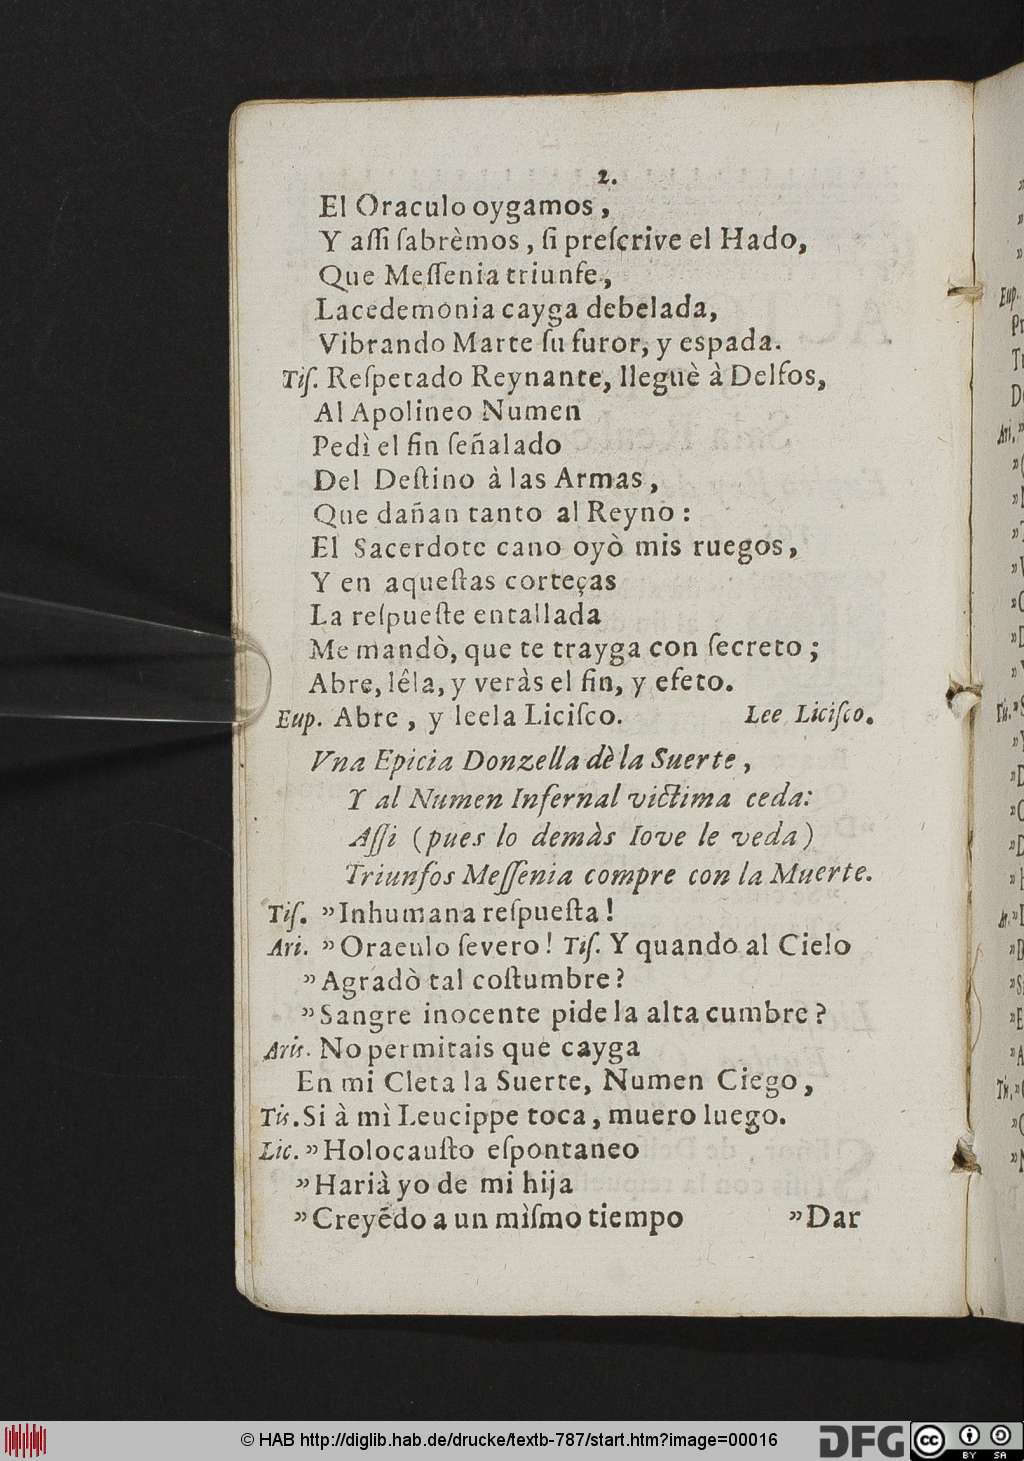 2.
El Oraculo oygamos,
Y aſſi ſabrèmos, ſi preſcrive el Hado,
Que Meſſenia triunfe,
Lacedemonia cayga debelada,
Vibrando Marte ſu furor, y espada.
Tiſ. Reſpetado Reynante, lleguè à Delfos,
Al Apolineo Numen
Pedì el fin ſeñalado
Del Deſtino à las Armas,
Que dañan tanto al Reyno:
El Sacerdote cano oyò mis ruegos,
Y en aqueſtas corteças
La reſpueſte entallada
Me mandò, que te trayga con ſecreto;
Abre, lêla, y veràs el fin, y efeto.
Eup. Abre, y leela Liciſco. Lee Liciſco.
Vna Epicia Donzella dè la Suerte,
Y al Numen Infernal victima ceda:
Aſſi (pues lo demàs Iove le veda)
Triunfos Meſſenia compre con la Muerte.
Tiſ. ”Inhumana reſpueſta!
Ari. ”Oraculo ſevero! Tiſ. Y quando al Cielo
”Agradò tal coſtumbre?
”Sangre inocente pide la alta cumbre?
Aris. No permitais que cayga
En mi Cleta la Suerte, Numen Ciego,
Tis. Si à mì Leucippe toca, muero luego.
Lic. ”Holocauſto eſpontaneo
”Harià yo de mi hija
”Creyẽdo a un mìſmo tiempo ”Dar
Eup.
Ari.”
Tis.”
Ar.”
Tis.”
© HAB http://diglib.hab.de/drucke/textb-787/start.htm?image=00016
DFG
cc
BY SA